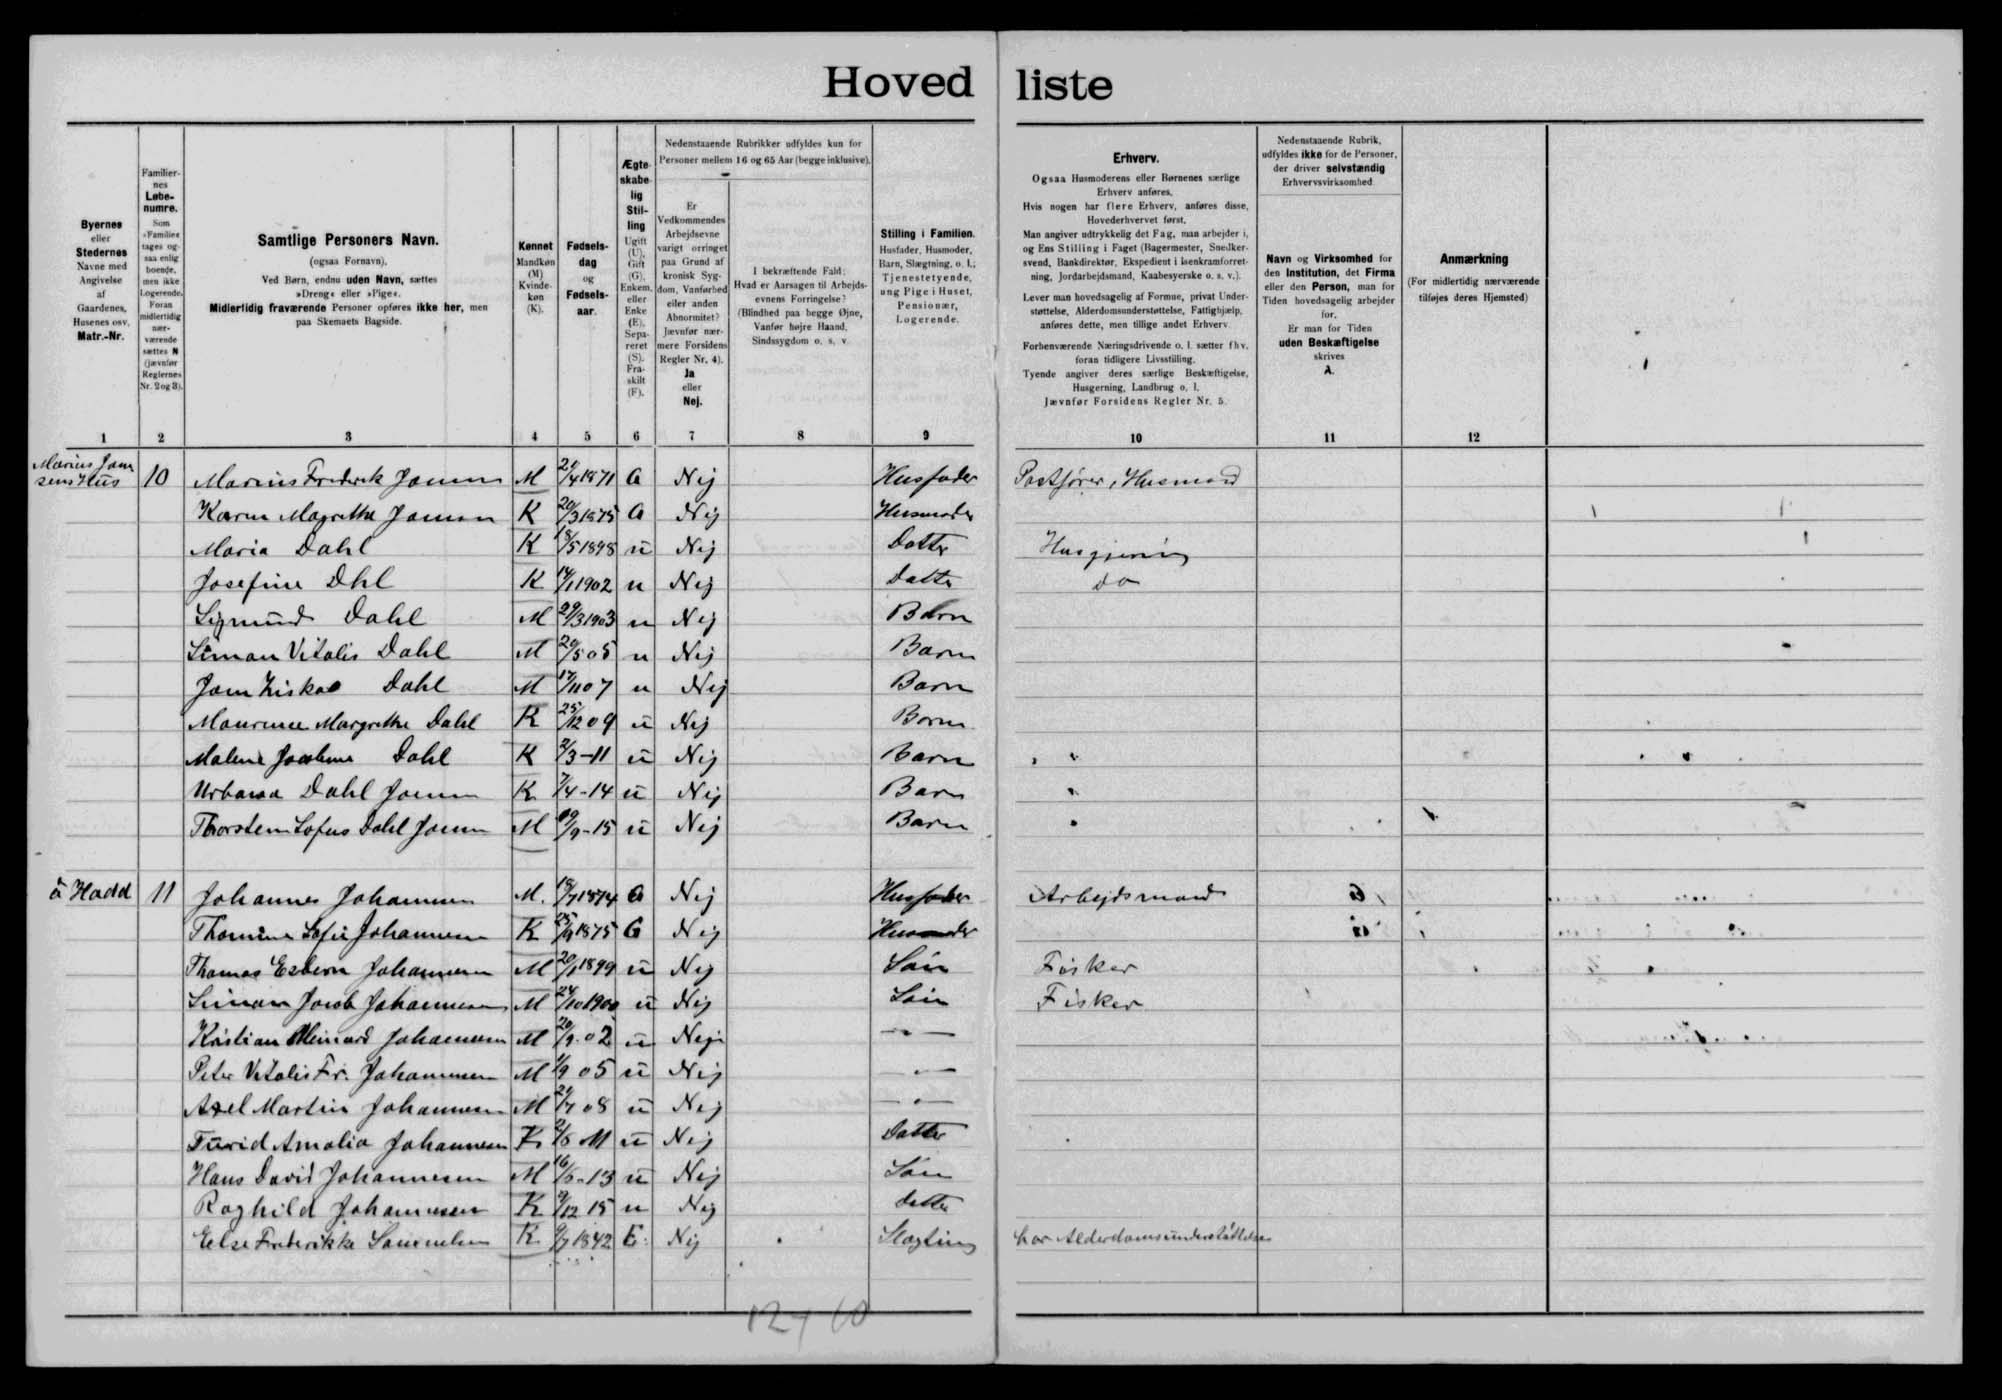 Hoved liste
Byernes
eller
Stedernes
Navne med
Angivelse
af
Gaardenes,
Husenes osv.
Matr.-Nr.
Familier-
nes
Løbe-
numre.
Som
»Familie«
tages og-
saa enlig
boende,
men ikke
Logerende.
Foran
midlertidig
nær-
værende
sættes N
(jævnfør
Reglernes
Nr. 2 og 3).
Samtlige Personers Navn.
(ogsaa Fornavn).
Ved Børn, endnu uden Navn, sættes
»Dreng« eller »Pige«.
Midlertidig fraværende Personer opføres ikke her, men
paa Skemaets Bagside.
Kønnet
Mandkøn
(M)
Kvinde-
køn
(K).
Fødsels-
dag
og
Fødsels-
aar.
Ægte-
skabe-
lig
Stil-
ling
Ugift
(U),
Gift
(G),
Enkem.
eller
Enke
(E),
Sepa-
reret
(S),
Fra-
skilt
(F).
Nedenstaaende Rubrikker udfyldes kun for
Personer mellem 16 og 65 Aar (begge inklusive).
Er
Vedkommendes
Arbejdsevne
varigt forringet
paa Grund af
kronisk Syg-
dom, Vanførhed
eller anden
Abnormitet?
Jævnfør nær-
mere Forsidens
Regler Nr. 4).
Ja
eller
Nej.
I bekræftende Fald:
Hvad er Aarsagen til Arbejds-
evnens Forringelse?
(Blindhed paa begge Øjne,
Vanfør højre Haand,
Sindssygdom o. s. v.
Stilling i Familien.
Husfader, Husmoder,
Barn, Slægtning, o. l.;
Tjenestetyende,
ung Pige i Huset,
Pensionær,
Logerende.
Erhverv.
Ogsaa Husmoderens eller Børnenes særlige
Erhverv anføres.
Hvis nogen har flere Erhverv, anføres disse,
Hovederhvervet først.
Man angiver udtrykkelig det Fag, man arbejder i,
og Ens Stilling i Faget (Bagermester, Snedker-
svend, Bankdirektør, Ekspedient i Isenkramforret-
ning, Jordarbejdsmand, Kaabesyerske o. s. v.).
Lever man hovedsagelig af Formue, privat Under-
støttelse, Alderdomsunderstøttelse, Fattighjælp,
anføres dette, men tillige andet Erhverv.
Forhenværende Næringsdrivende o. l. sætter fhv.
foran tidligere Livsstilling.
Tyende angiver deres særlige Beskæftigelse,
Husgerning, Landbrug o. l.
Jævnfør Forsidens Regler Nr. 5.
Nedenstaaende Rubrik,
udfyldes ikke for de Personer,
der driver selvstændig
Erhvervsvirksomhed
Navn og Virksomhed for
den Institution, det Firma
eller den Person, man for
Tiden hovedsagelig arbejder
for.
Er man for Tiden
uden Beskæftigelse
skrives
A.
Anmærkning
(For midlertidig nærværende
tilføjes deres Hjemsted)
1 2 3 4 5 6 7 8 9 10 11 12
Marius Joen
sens Hus 10 Marius Frederik Joensen M 21/4 1871 G Nej Husfader Postfører, Husmand
Karen Magrethe Joensen K 20/3 1875 G Nej Husmoder
Maria Dahl K 18/5 1898 u Nej Datter Husgjerning
Josefine Dhl K 14/1 1902 u Nej Datter do
Sigmund Dahl M 29/3 1903 u Nej Barn
Simon Vitalis Dahl M 20/5 05 u Nej Barn
Joen Dahl M 17/11 07 u Nej Barn
Maurense Margrethe Dahl K 25/12 09 u Nej Barn
Malene Dahl K 2/3-11 u Nej Barn
Urbania Dahl Joensen K 7/4-14 u Nej Barn
Thorstein Sofus Dahl Joensen M 19/9-15 u Nej Barn
á Hadd 11 Johannes Johannesen M. 18/7 1874 G Nej Husfader Arbejdsmand
Thomine Sofie Johannesen K 25/9 1875 G Nej Husmoder
Thomas Esbern Johannesen M 20/1 1899 u Nej Søn Fisker
Simon Jacob Johannesen M 24/10 1900 u Nej Søn Fisker
Kristian Meinard Johannesen M 20/9-02 u Nej —„—
Peter Vitalis Fr. Johannesen M 1/9 05 u Nej —„—
Axel Martin Johannesen M 21/7 08 u Nej —„—
Turid Amalia Johannesen K 2/8 11 u Nej Datter
Hans David Johannesen M 16/5-13 u Nej Søn
Raghild Johannesen K 9/12 15 u Nej datter
Eelse Frederikke Samuelsen K 9/7 1842 E. Nej Slægtning har Alderdomsunderstøttelse
12 + 10